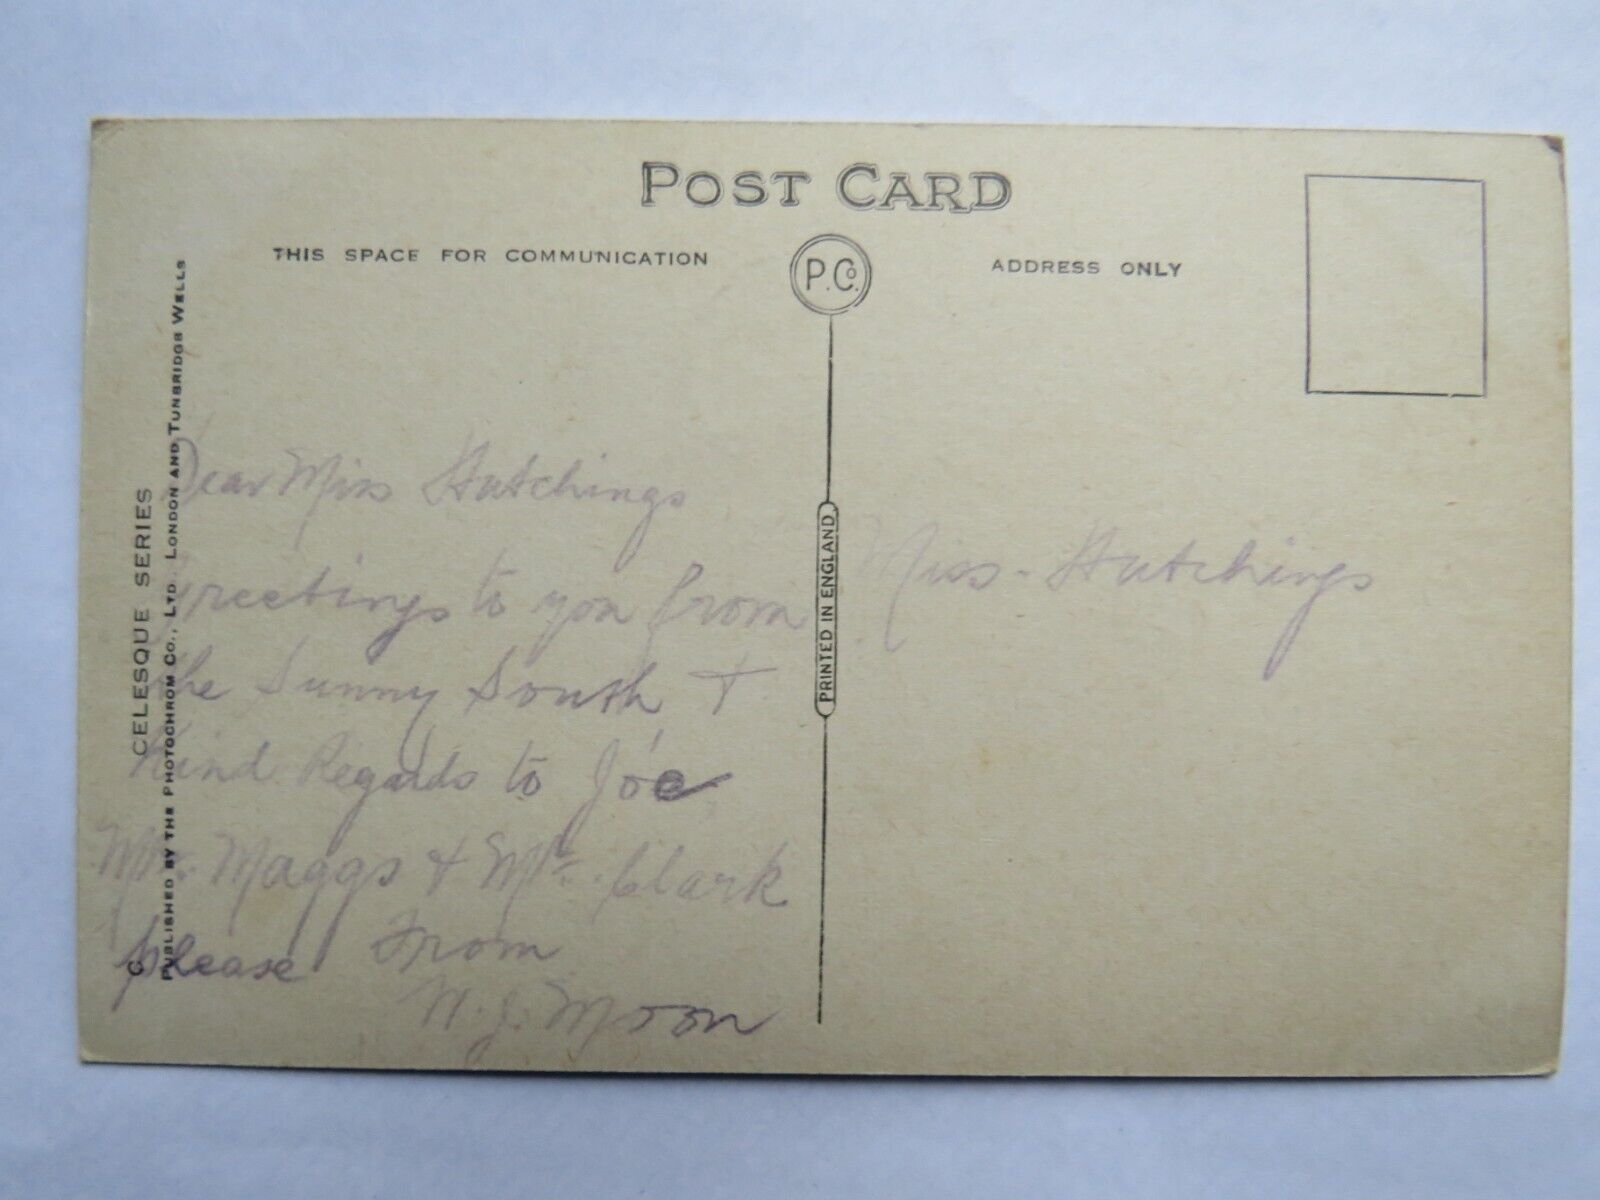 POST CARD
THIS SPACE FOR COMMUNICATION
P.Co.
ADDRESS ONLY
CELESQUE SERIES
PUBLISHED BY THE PHOTOCHROM CO., LTD. LONDON AND TUNBRIDGE WELLS
PRINTED IN ENGLAND
Dear Miss Hutchings
Greetings to you from
the Sunny South +
Kind Regards to Joe
Maggs + Mr. Clark
please From
J. Moon
Miss - Hutchings